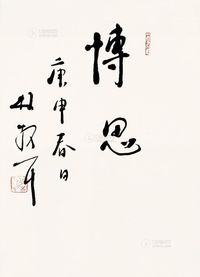 博思
庚申春日
林散耳